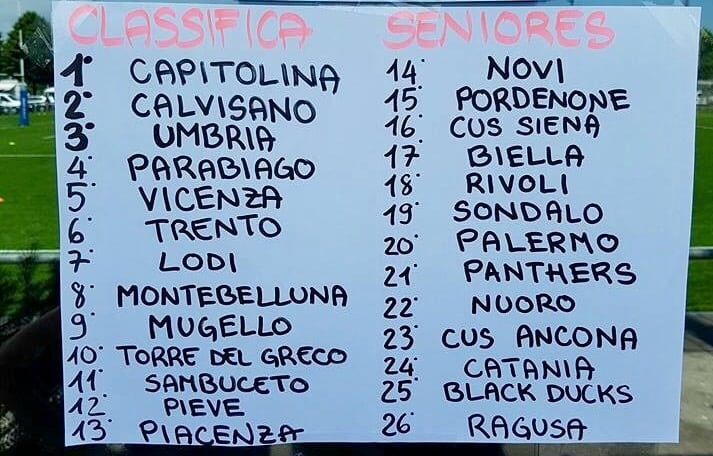 CLASSIFICA SENIORES
1° CAPITOLINA
2° CALVISANO
3° UMBRIA
4° PARABIAGO
5° VICENZA
6° TRENTO
7° LODI
8° MONTEBELLUNA
9° MUGELLO
10° TORRE DEL GRECO
11° SAMBUCETO
12° PIEVE
13° PIACENZA
14° NOVI
15° PORDENONE
16° CUS SIENA
17° BIELLA
18° RIVOLI
19° SONDALO
20° PALERMO
21° PANTHERS
22° NUORO
23° CUS ANCONA
24° CATANIA
25° BLACK DUCKS
26° RAGUSA